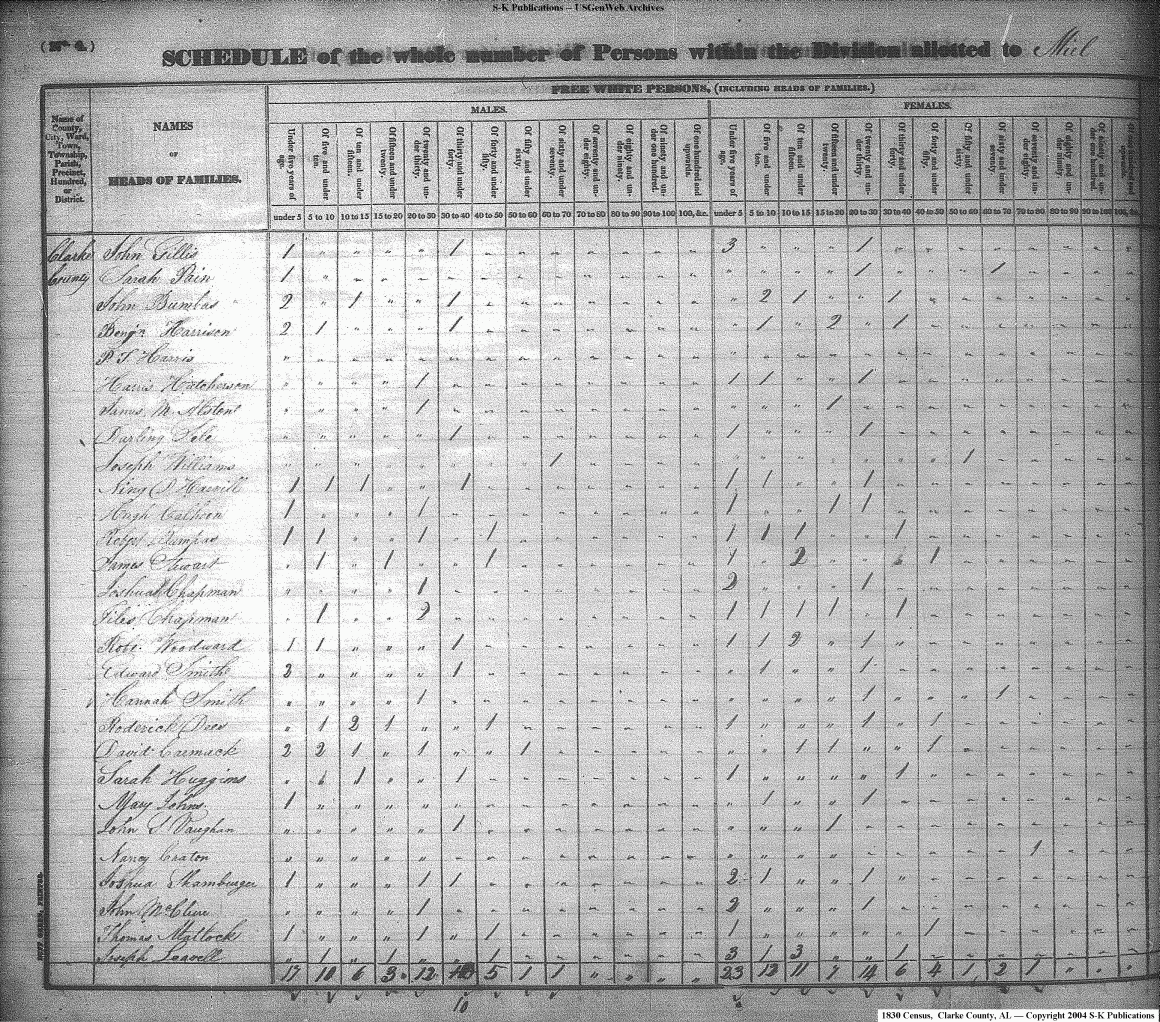 S-K Publications -- USGenWeb Archives
(No 4.)
SCHEDULE of the whole number of Persons within the Division allotted to
FREE WHITE PERSONS, (INCLUDING HEADS OF FAMILIES.)
MALES.
FEMALES.
Name of County, City, Ward, Town, Township, Parish, Precinct, Hundred, or District.
NAMES
OF
HEADS OF FAMILIES.
Under five years of age.
Of five and under ten.
Of ten and under fifteen.
Of fifteen and under twenty.
Of twenty and under thirty.
Of thirty and under forty.
Of forty and under fifty.
Of fifty and under sixty.
Of sixty and under seventy.
Of seventy and under eighty.
Of eighty and under ninety.
Of ninety and under one hundred.
Of one hundred and upwards.
Under five years of age.
Of five and under ten.
Of ten and under fifteen.
Of fifteen and under twenty.
Of twenty and under thirty.
Of thirty and under forty.
Of forty and under fifty.
Of fifty and under sixty.
Of sixty and under seventy.
Of seventy and under eighty.
Of eighty and under ninety.
Of ninety and under one hundred.
under 5 5 to 10 10 to 15 15 to 20 20 to 30 30 to 40 40 to 50 50 to 60 60 to 70 70 to 80 80 to 90 90 to 100 100, &c. under 5 5 to 10 10 to 15 15 to 20 20 to 30 30 to 40 40 to 50 50 to 60 60 to 70 70 to 80 80 to 90 90 to 100 100, &c.
Clarke John Gillis 1 1 3 1
County Sarah Pain 1 1 1
John Bumbas 2 1 1 2 1 1
Benjn Harrison 2 1 1 1 2 1
P. T. Harris
Harris Hatcherson 1 1 1 1
James M. Alstone 1 1
Darling 1 1 1
Joseph Williams 1 1
1 1 1 1 1 1 1
Hugh Calhoon 1 1 1 1 1
1 1 1 1 1 1 1 1
James Stwart 1 1 1 1 2 1
Joshua Chapman 1 2 1
Giles Chapman 1 2 1 1 1 1 1
Robt. Woodward 1 1 1 1 1 2 1
Edward Smith 2 1 1 1
Hannah Smith 1 1 1
Roderick 1 2 1 1 1 1 1
David Carmack 2 2 1 1 1 1 1 1
Sarah Huggins 1 1 1 1 1
Mary Johns 1 1 1
John S Vaughan 1 1
Nancy Craton 1
Joshua Shamburger 1 1 1 2 1 1 1
John McClure 1 2 1
Thomas Matlock 1 1 1 1 1
Joseph Leavell 1 1 1 3 1 3 1
17 10 6 3 12 5 1 1 23 12 11 7 14 6 4 1 2 1
10
1830 Census, Clarke County, AL — Copyright 2004 S-K Publications